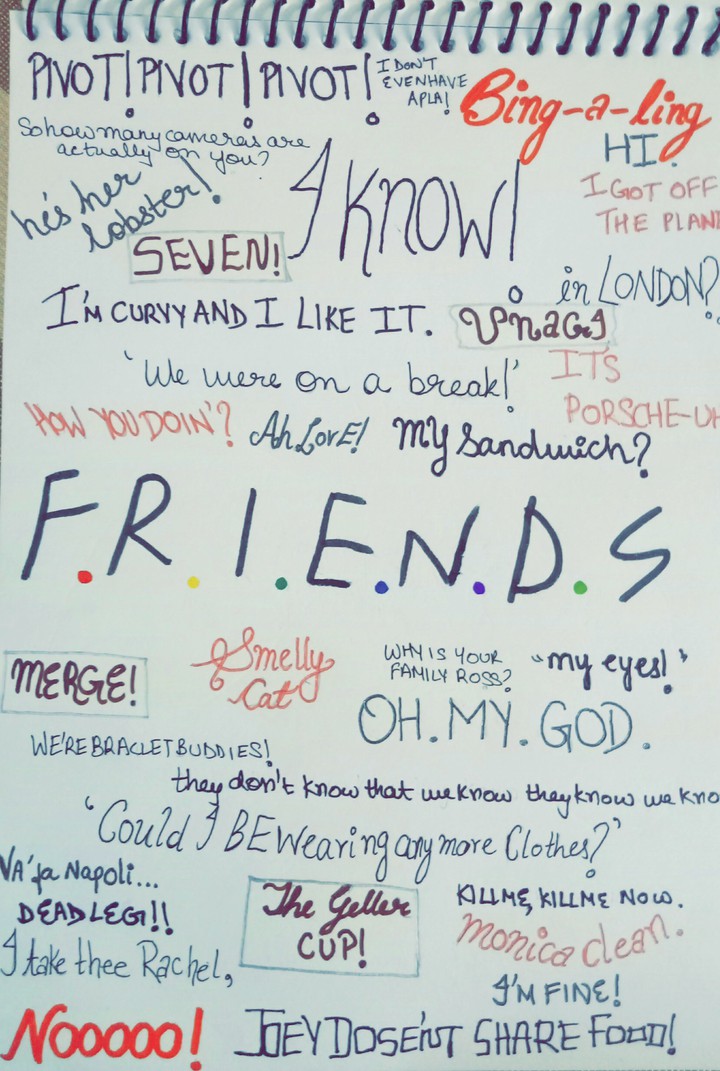 PIVOT! PIVOT! PIVOT!
I DON'T
EVENHAVE
APLA!
Bing-a-ling
So how many cameras are
actually on you?
HI.
he's her
lobster!
I KNOW!
I GOT OFF
THE PLANE
SEVEN!
in LONDON?
I'M CURVY AND I LIKE IT.
UNAGI
'We were on a break!'
IT'S
PORSCHE-UH
HOW YOU DOIN'?
Ah, LovE!
MY Sandwich?
F.R.I.E.N.D.S
MERGE!
Smelly
Cat
WHY IS YOUR
FAMILY ROSS?
"my eyes!"
OH.MY.GOD.
WE'RE BRACLET BUDDIES!
they don't know that we know they know we kno
'Could I BE wearing any more Clothes?'
VA'fa Napoli...
DEAD LEG!!
I take thee Rachel,
The Geller
CUP!
KILL ME, KILL ME NOW.
monica clean.
I'M FINE!
NOOOOO!
JOEY DOSE'NT SHARE FOOD!